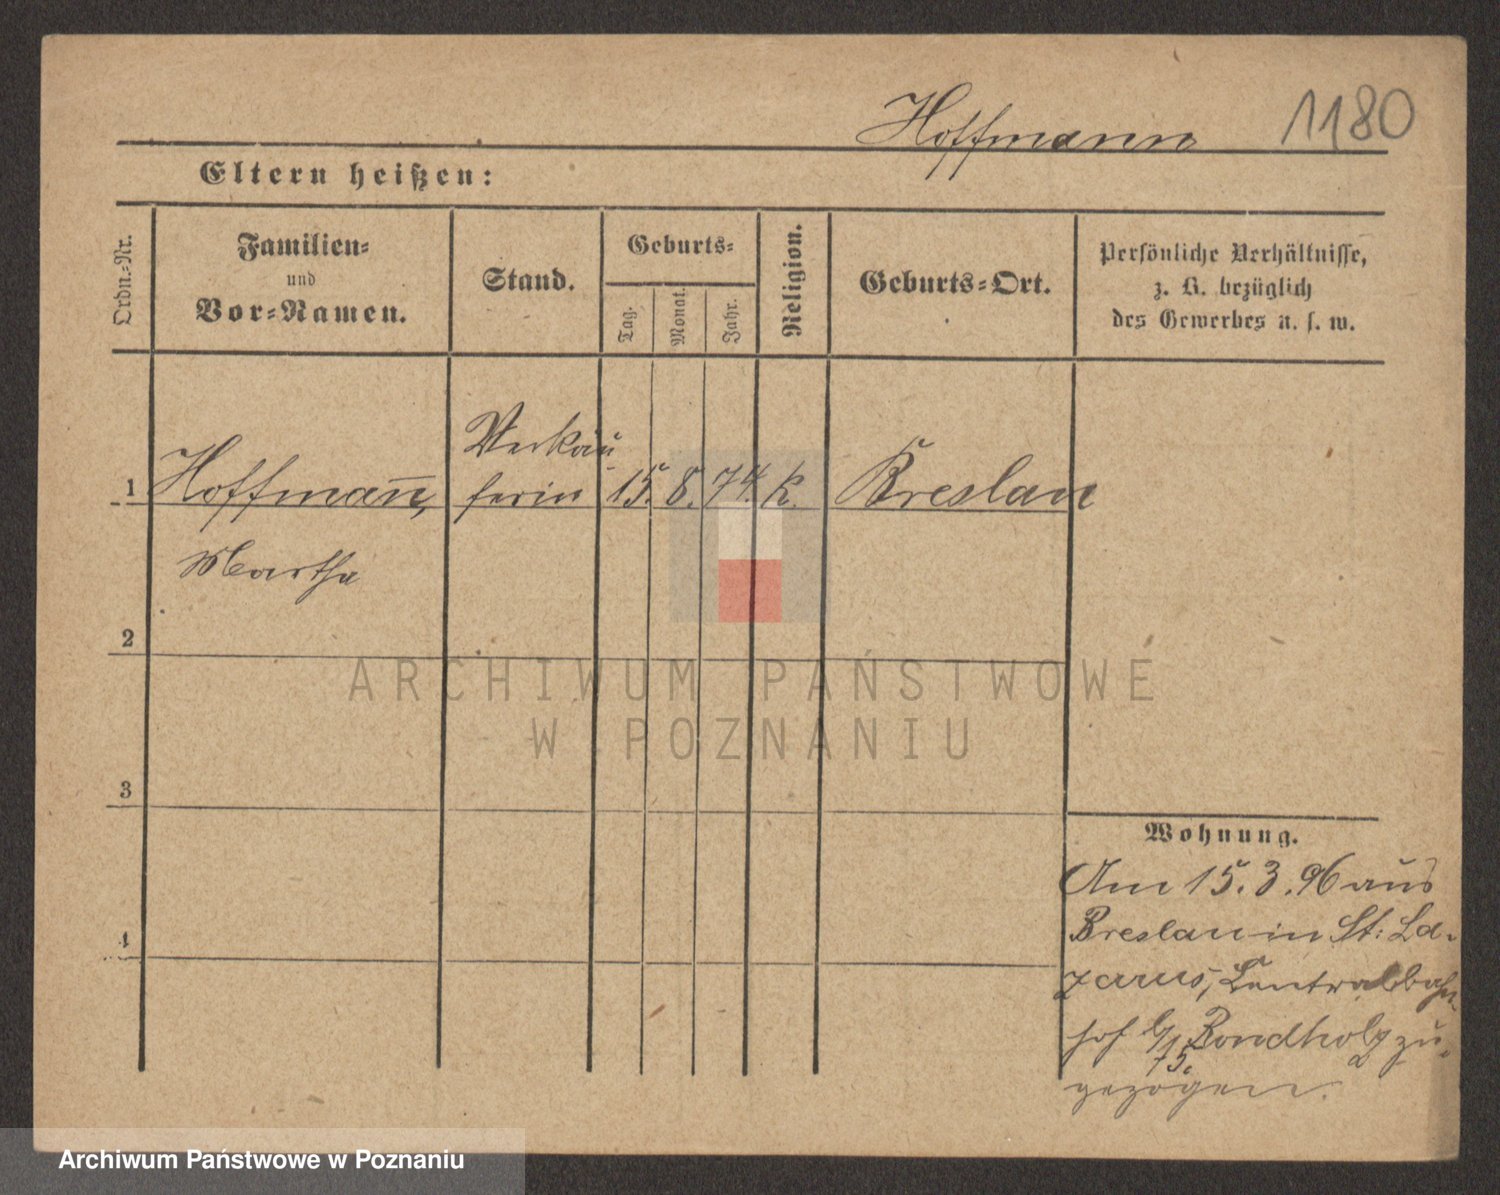 Hoffmann 1180
Eltern heißen:
Ordn.-Nr.
Familien-
und
Vor-Namen.
Stand.
Geburts-
Tag.
Monat.
Jahr.
Religion.
Geburts-Ort.
Persönliche Verhältnisse,
z. B. bezüglich
des Gewerbes u. s. w.
1 Hoffmann, Verkäu
ferin 15. 8. 74. k. Breslau
Martha
2
3
4
Wohnung.
Am 15. 3. 96 aus
Breslau in St: La-
zarus, Centralbahn
hof b/ Rondholz zu-
gezogen.
ARCHIWUM PAŃSTWOWE
W POZNANIU
Archiwum Państwowe w Poznaniu